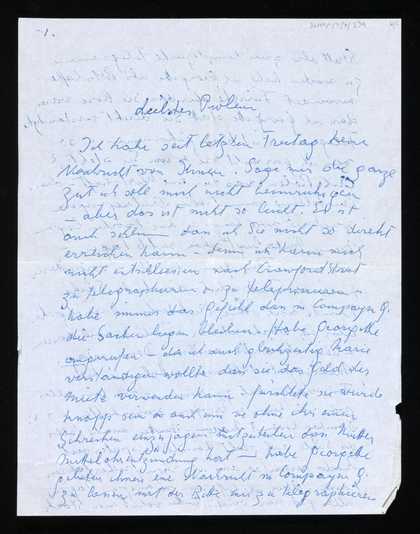 1.
Ich habe seit letzten Freitag keine
Nachricht von Ihnen. Sage mir die ganze
Zeit ich soll mich nicht beunruhigen
– aber das ist nicht so leicht. Es ist
auch schlimm dass ich Sie nicht so direkt
erreichen kann – denn ich kann mich
nicht entschliessen nach Crawford Street
zu telegraphieren o. zu telephonieren –
habe immer das Gefühl dass in Compayne G.
die Sachen liegen bleiben. Habe Georgette
angerufen – da ich auch gleichzeitig Marie
verständigen wollte dass sie das Geld der
Miete verwenden kann – fürchtete sie würde
knapp sein u. auch um sie ohne ihr einen
Schrecken einzujagen mitzuteilen dass Mutter
Mittelohrentzündung hat – habe Georgette
gebeten Ihnen eine Nachricht in Compayne G.
zu lassen mit der Bitte mir zu telegraphieren